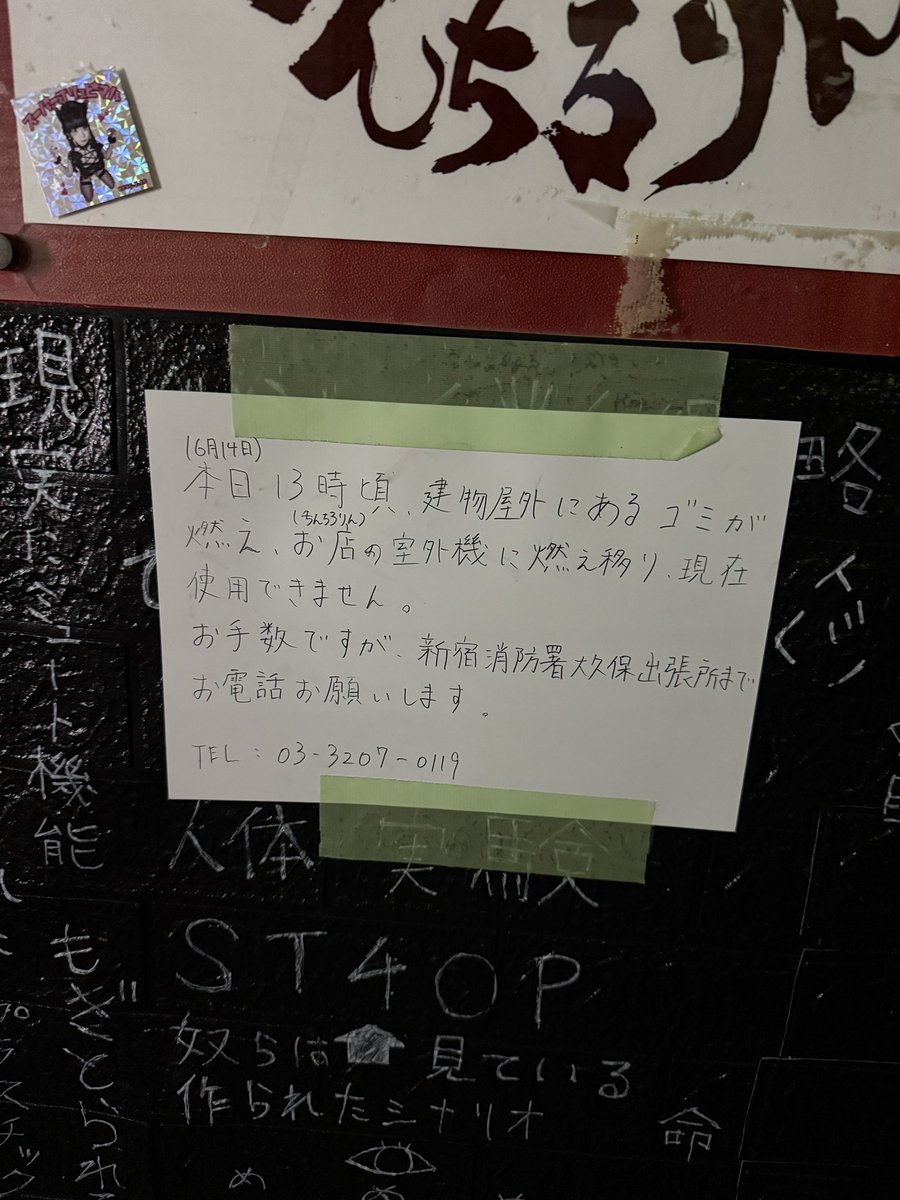 ちろりん
(6月14日)
本日13時頃、建物屋外にあるゴミが
(ちんちろりん)
燃え、お店の室外機に燃え移り、現在
使用できません。
お手数ですが、新宿消防署大久保出張所まで
お電話お願いします。
TEL:03-3207-0119
現実にミュート機能
略
人体実験
ST4OP
奴らは 見ている
作られたシナリオ
命
め
もぎとられ